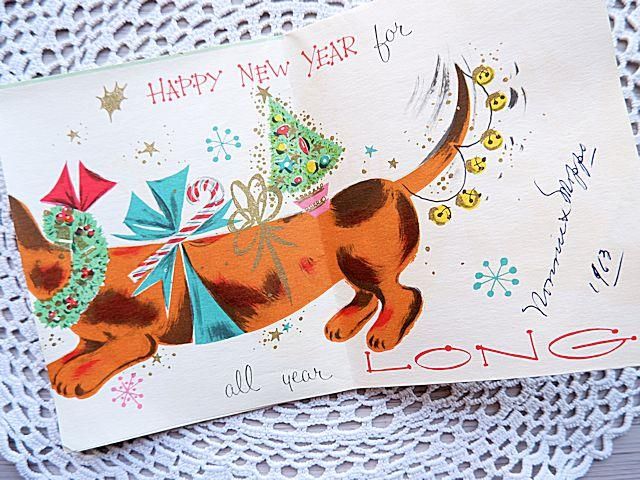 HAPPY NEW YEAR for
all year LONG
1963